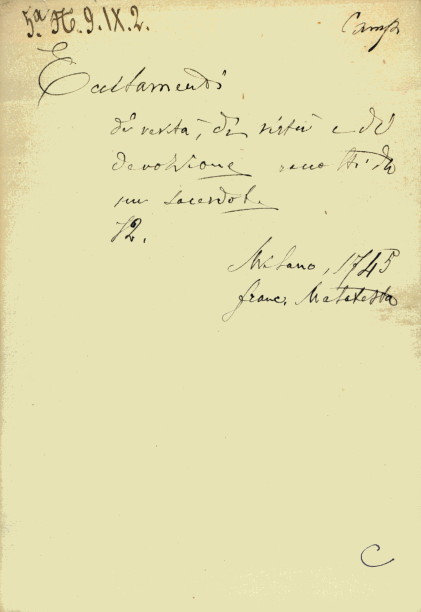 5ª H. 9. IX. 2.
Camp
Eccitamenti
di verità, di virtù e di
devozione raccolti da
un sacerdot.
12.
Milano, 1745
franc. Malatesta
C